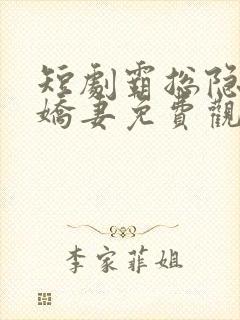 短劇霸总隐
嬌妻免費觀
李家菲姐